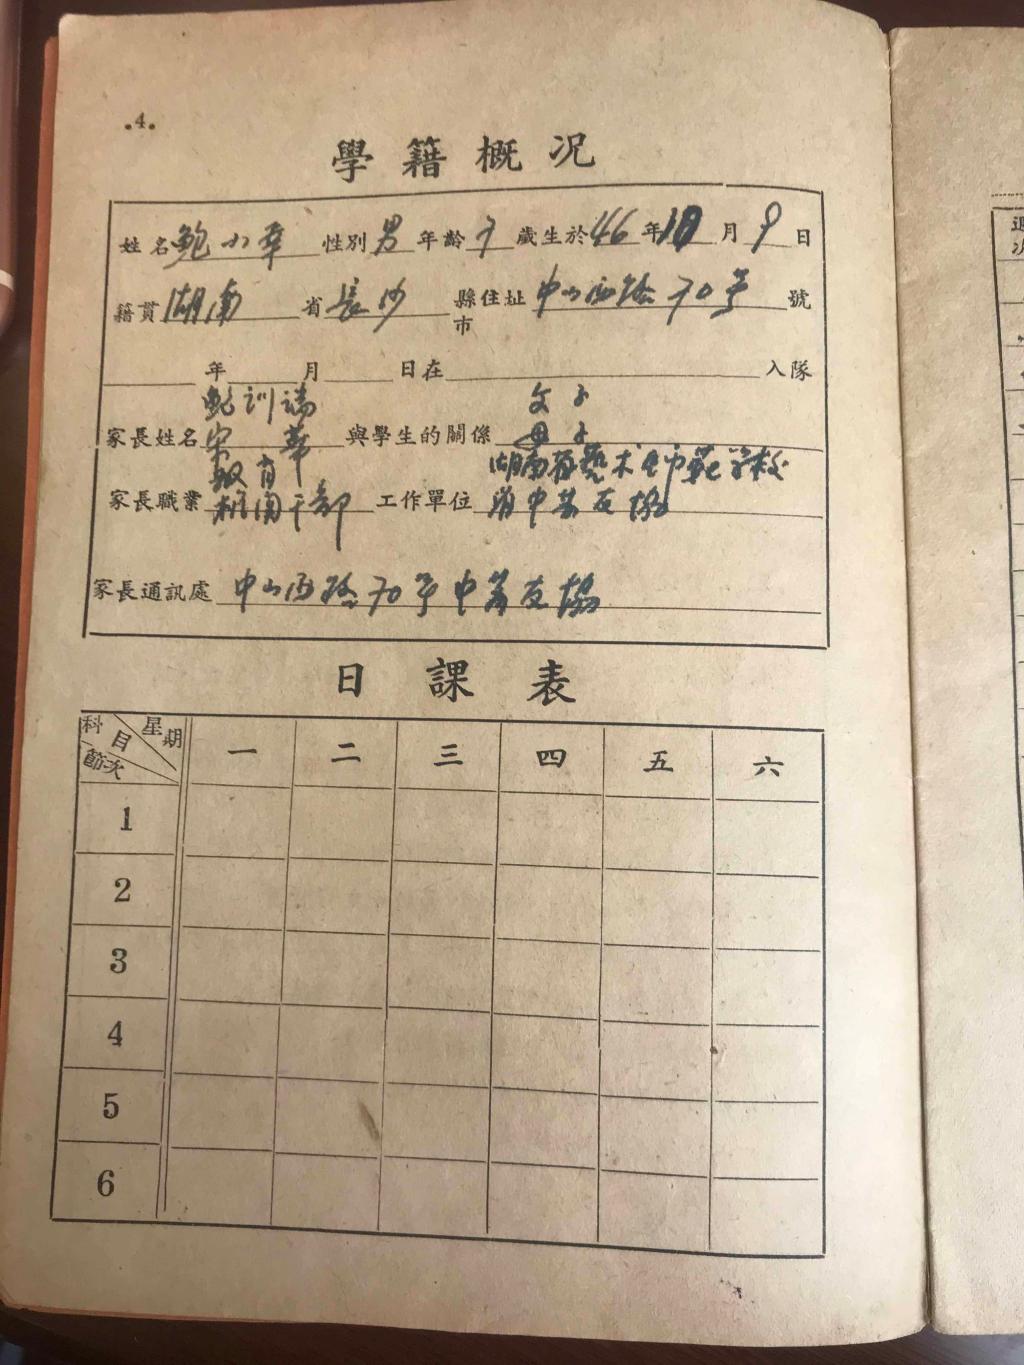 .4.
學籍概况
姓名鮑小 性別男年齡7歲生於46年10月9日
籍貫湖南省長沙縣市住址中山西路70号號
年 月 日在 入隊
鮑訓 父子
家長姓名宋 華 與學生的關係 母子
教育 湖南省藝术师範学校
家長職業 機関干部 工作單位 省中苏友協
家長通訊處 中山西路70号中苏友協
日課表
科目 星期 節次 一 二 三 四 五 六
1
2
3
4
5
6